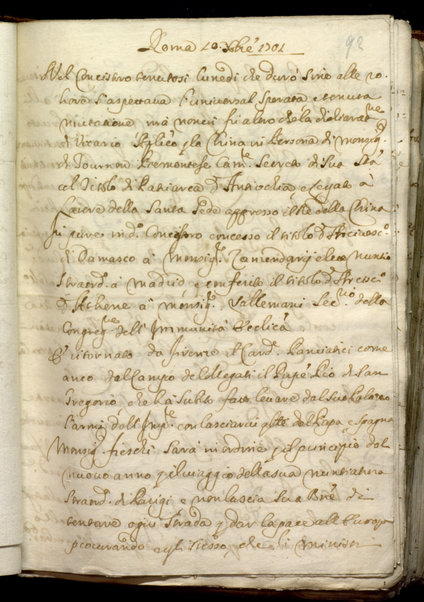 Roma 10 Xbre 1701
92
Nel Concistro tenutosi lunedi che durò sino alle 20
hore s'aspettava l'universal sperata e temuta
mutatione ma non vi fu altro che la dichiarat.ne
di Vicario Aplico p la China in persona di Monsig.r
di Tournon Piemontese Cam.re Secreto di Sua Stà
col titolo di Patriarca d'Antiochia e Legato à
Latere della Santa Sede appresso il Rè della China
fu pure in d.o Concistoro concesso il titolo d'Arcivesc.o
di Damasco a Monsig.r Zanzendarij eletto nuntio
straord.o à Madrid e conferito il titolo d'Arcivesc.o
d'Athene à Monsig.r Vallemani Sec.rio della
Congreg.ne dell'Immunità Ecclica
E' ritornato da firenze il Card. Panciatici come
anco dal Campo de Collegati il Padre Pio di San
Gregorio che hà subito fatto levare dal suo Palazzo
l'armi dell'Imp.re con lasciarvi q̃lle del Papa e Spagna
Monsig.r fieschi sarà in ordine p il principio del
nuovo anno p il viaggio della sua nuntiatura
straord. di Parigi e non lascia Sua Bne de
tentare ogni strada p dar la pace all'Europa
procurando egli stesso che li ministri